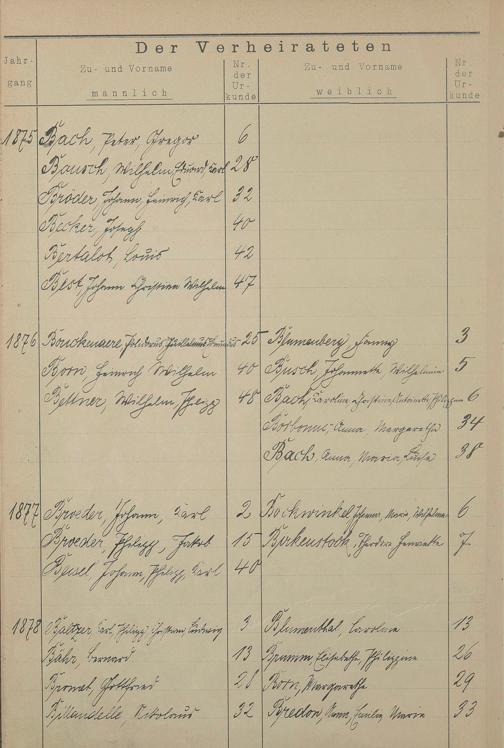 Der Verheirateten
Jahrgang Zu- und Vorname männlich Nr. der Urkunde Zu- und Vorname weiblich Nr. der Urkunde
1875 Bach, Peter, Gregor 6
Bausch, Wilhelm, Eduard, Carl 28
Bröder, Johann, Heinrich, Carl 32
Becker, Joseph 40
Bertalot, Louis 42
Best, Johann Christian Wilhelm 47
1876 25 Blumenberg, Fanny 3
Born, Heinrich Wilhelm 40 Busch, Johannette, Wilhelmine 5
Bettner, Wilhelm, Philipp 48 Bach, Caroline Christine Antoinette Philippine 6
Anna, Margaretha 34
Bach, Anna, Maria, Luise 38
1877 Broeder, Johann, Carl 2 Bockwinkel, Johanna, Maria, Wilhelmine 6
Broeder, Philipp, Jakob 15 Birkenstock, Theodora Henriette 7
Beisel, Johann, Philipp, Carl 40
1878 Baltzer, Carl, Philipp Christian, Ludwig 3 Blumenthal, Caroline 13
Bähr, Bernard 13 Elisabetha, Philippine 26
Gottfried 28 Born, Margaretha 29
Nikolaus 32 Bredon, Anna, Emilie, Maria 33